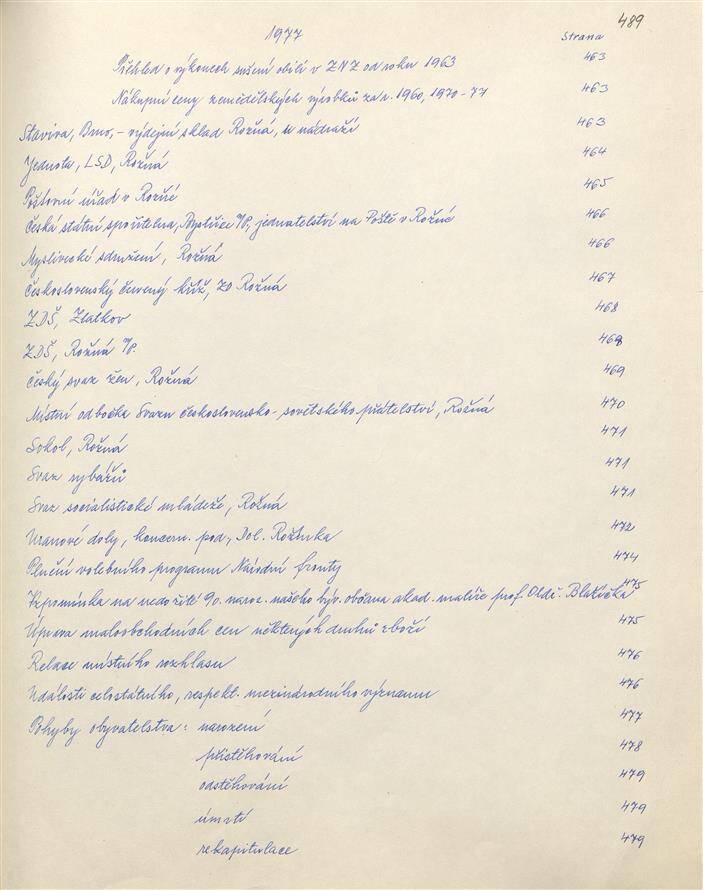 489
1977 Strana
Přehled o výkonech sušení obilí v ZNZ od roku 1963 463
Nákupní ceny zemědělských výrobků za r. 1960, 1970-77 463
Staviva, Brno, - výdejní sklad Rožná, u nádraží 463
Jednota, LSD, Rožná 464
Poštovní úřad v Rožné 465
Česká státní spořitelna, Bystřice n/P., jednatelství na Poště v Rožné 466
Myslivecké sdružení, Rožná 466
Československý červený kříž, ZO Rožná 467
ZDŠ, Zlatkov 468
ZDŠ, Rožná n/P. 468
Český svaz žen, Rožná 469
Místní odbočka Svazu československo-sovětského přátelství, Rožná 470
Sokol, Rožná 471
Svaz rybářů 471
Svaz socialistické mládeže, Rožná 471
Uranové doly, koncern. pod., Dol. Rožínka 472
Plnění volebního programu Národní fronty 474
Vzpomínka na nedožité 90. naroz. našeho býv. občana akad. malíře prof. Oldř. Blažíčka 475
Úprava maloobchodních cen některých druhů zboží 475
Relace místního rozhlasu 476
Události celostátního, respekt. mezinárodního významu 476
Pohyby obyvatelstva: narození 477
přistěhování 478
odstěhování 479
úmrtí 479
rekapitulace 479